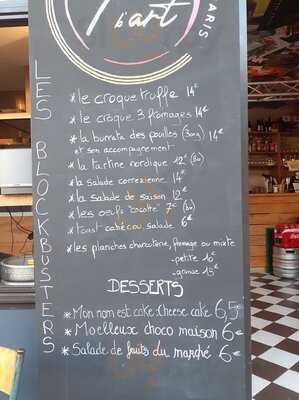 d'art
PARIS
LES BLOCKBUSTERS
* le croque truffe 14€
* le croque 3 fromages 14€
* la burrata des pouilles (300g) 14€
et son accompagnement
* la tartine nordique 12€ (Bio)
* la salade correzienne 14€
* la salade de saison 12€
* les oeufs "cocotte" 7€ (Bio)
* toast cabécou, salade 6€
* les planches charcuterie, fromage ou mixte
- petite 10€
- grande 15€
DESSERTS
* Mon nom est cake. Cheese cake 6,50€
* Moelleux choco maison 6€
* Salade de fruits du marché 6€